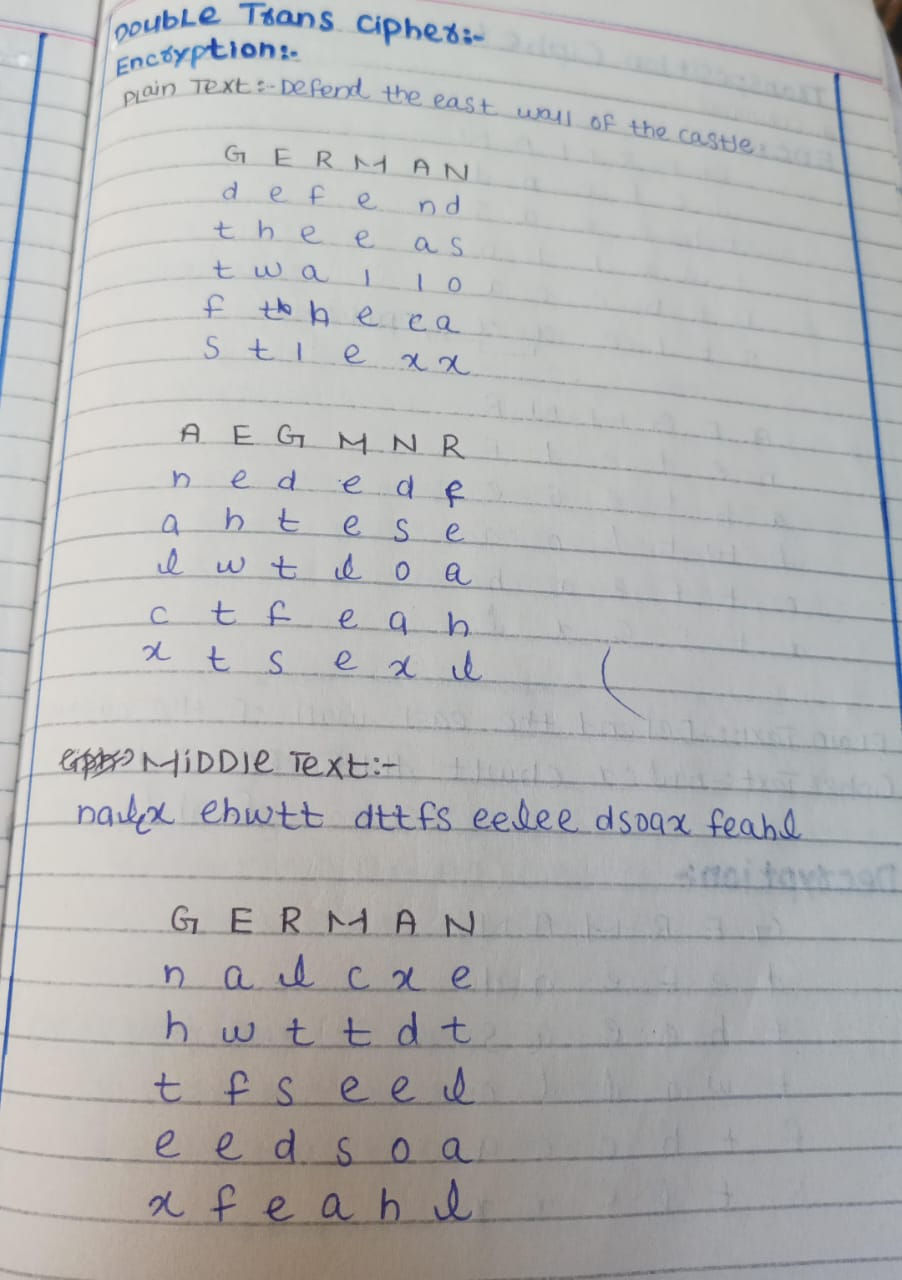 DOUBLE Trans cipher:-
Encryption:-
Plain Text:- Defend the east wall of the castle.
G E R M A N
d e f e n d
t h e e a s
t w a l l o
f t h e c a
s t l e x x
A E G M N R
n e d e d f
a h t e s e
l w t l o a
c t f e a h
x t s e x l
MiDDle Text:-
nalcx ehwtt dttfs eelee dsoax feahl
G E R M A N
n a l c x e
h w t t d t
t f s e e l
e e d s o a
x f e a h l